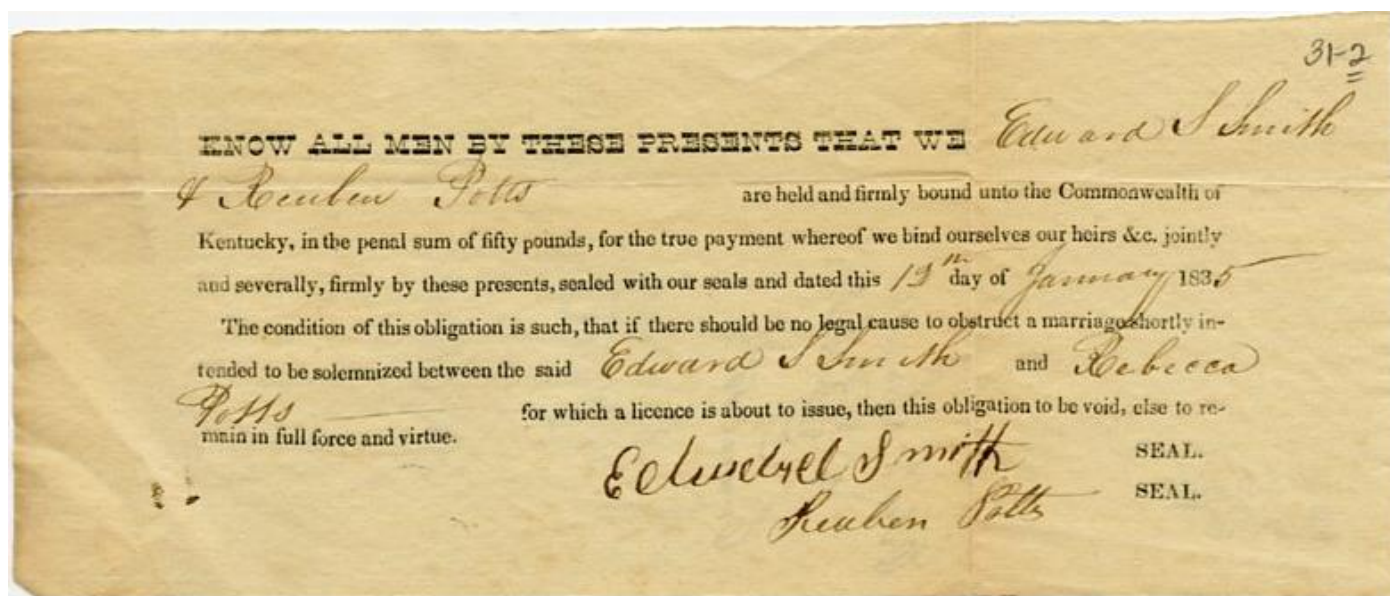 31-2
KNOW ALL MEN BY THESE PRESENTS THAT WE Edward S Smith
& Reuben Potts are held and firmly bound unto the Commonwealth of
Kentucky, in the penal sum of fifty pounds, for the true payment whereof we bind ourselves our heirs &c. jointly
and severally, firmly by these presents, sealed with our seals and dated this 12th day of January 1835
The condition of this obligation is such, that if there should be no legal cause to obstruct a marriage shortly in-
tended to be solemnized between the said Edward S Smith and Rebecca
Potts for which a licence is about to issue, then this obligation to be void, else to re-
main in full force and virtue.
Edward Smith SEAL.
Reuben Potts SEAL.